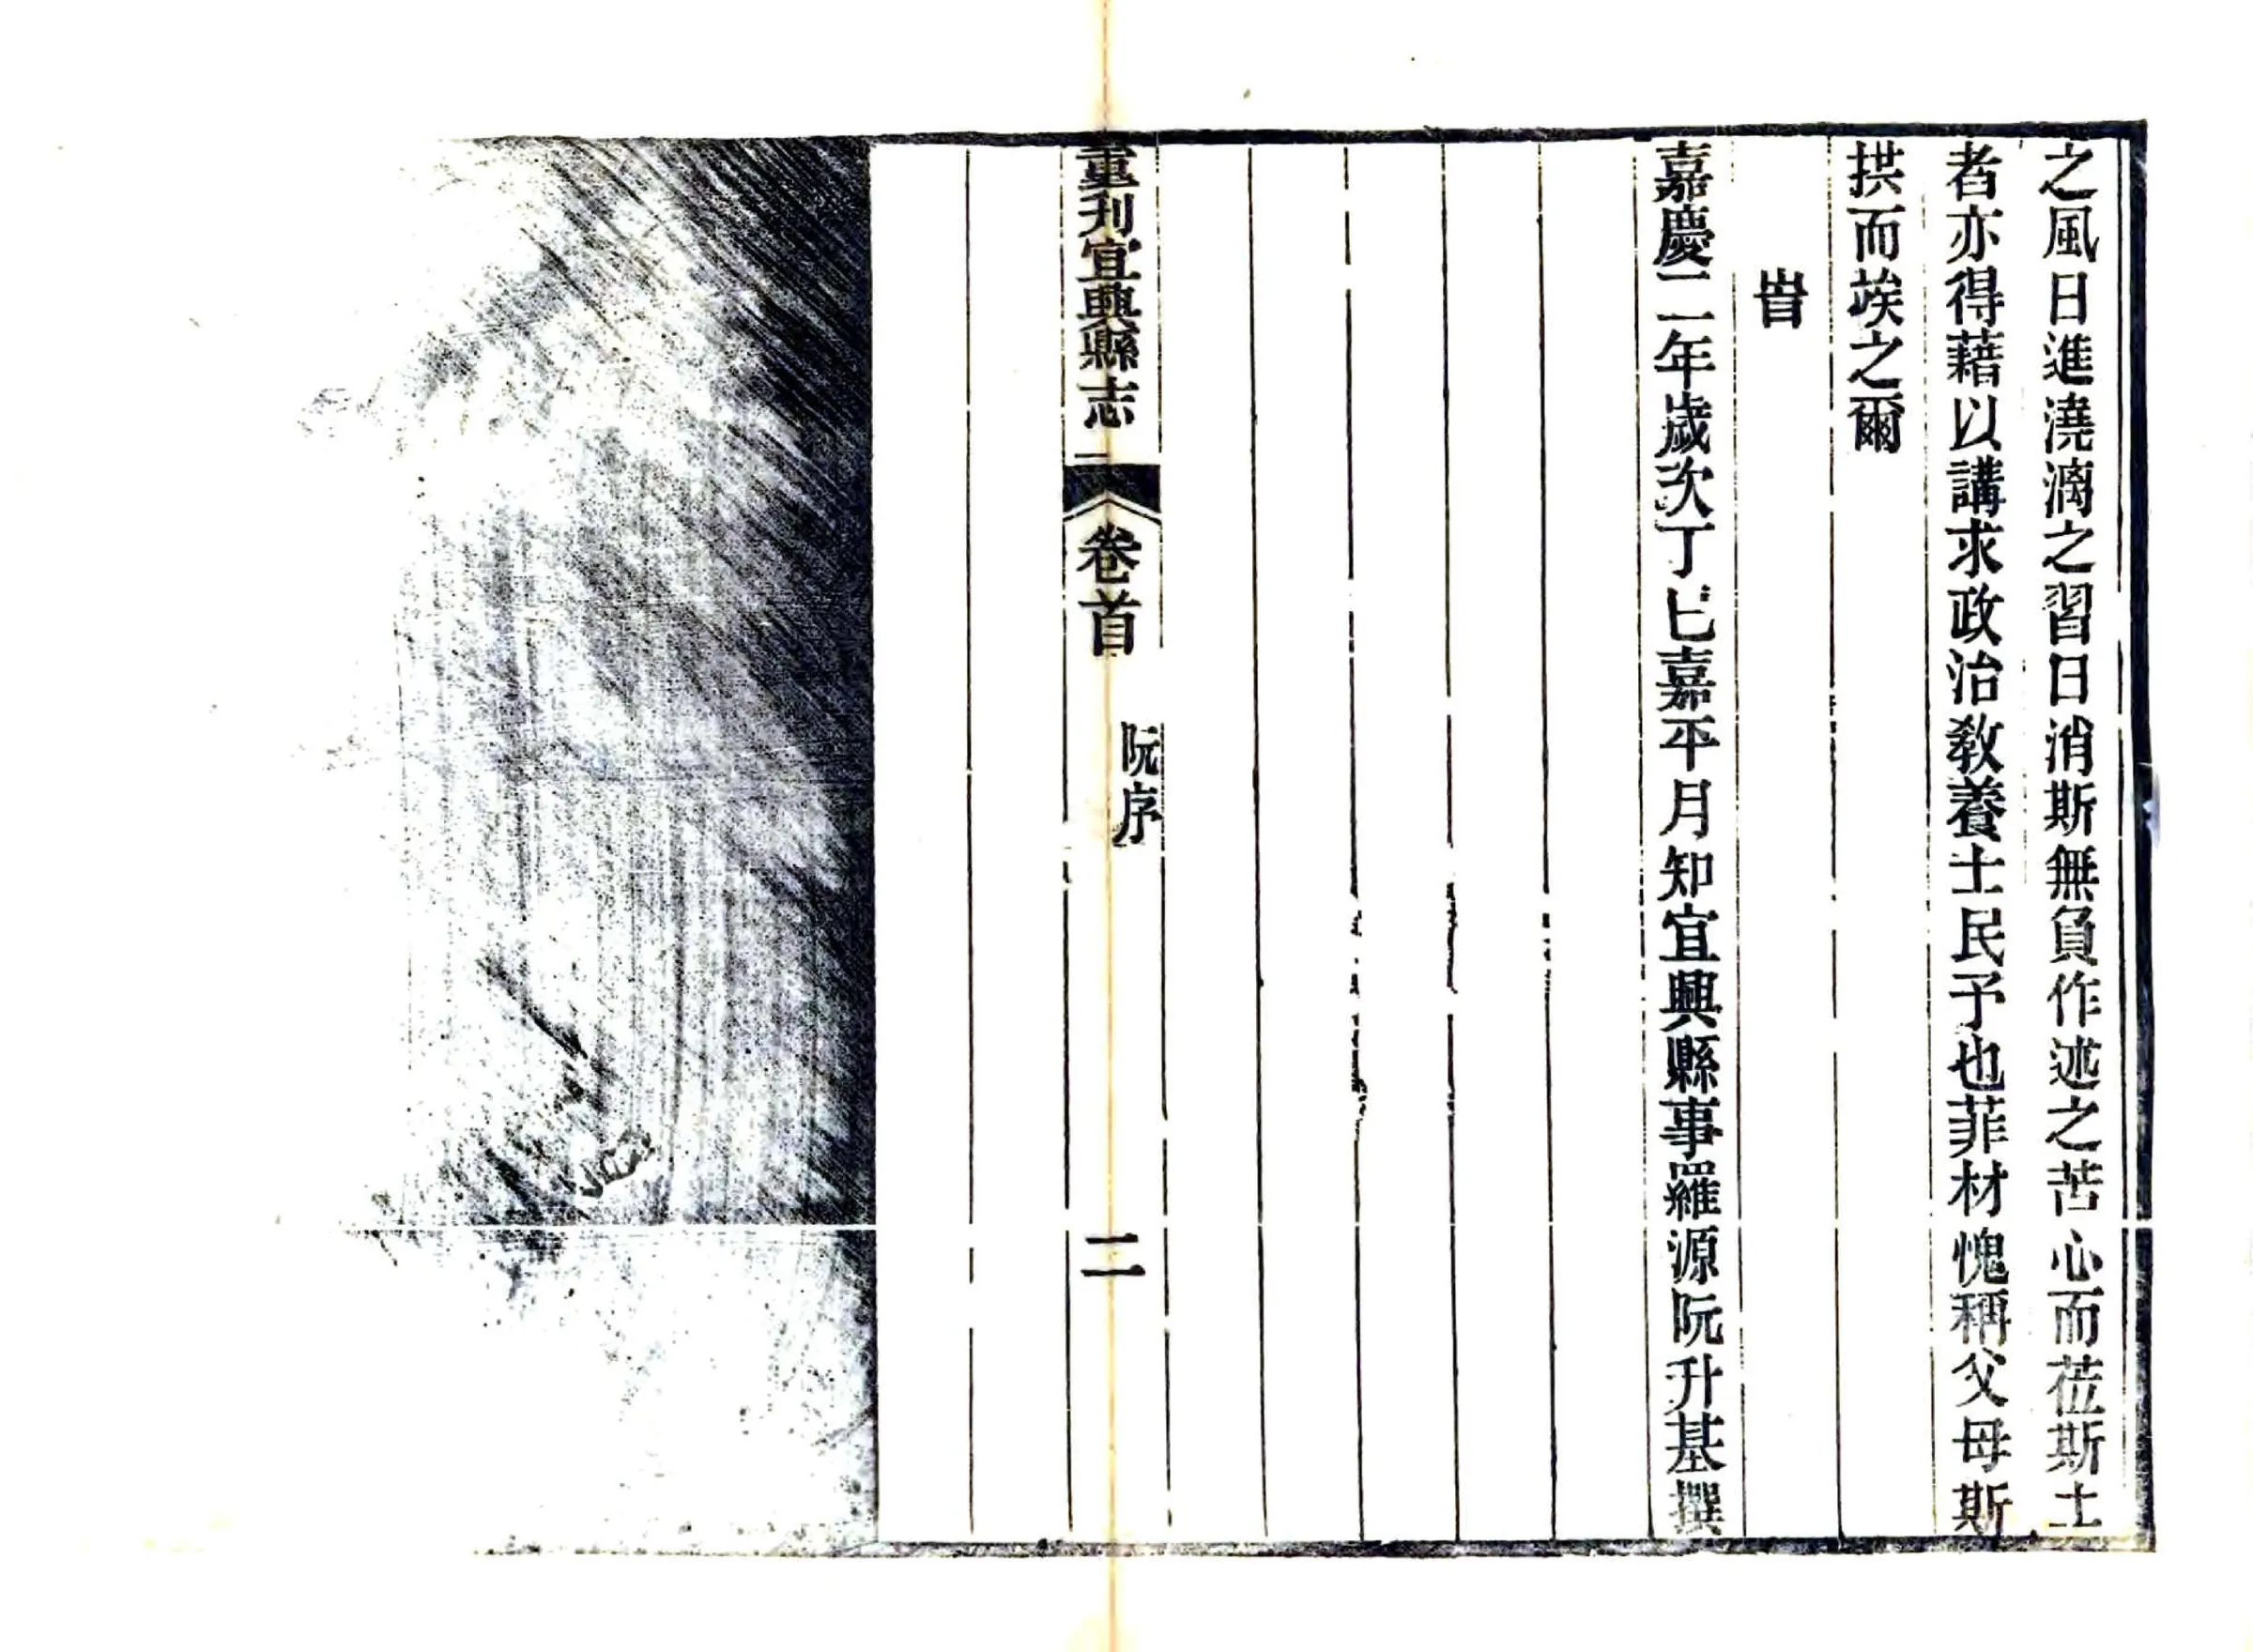 之風日進澆漓之習日消斯無負作述之苦心而莅斯土
者亦得藉以講求政治敎養士民予也菲材愧稱父母斯
拱而竢之爾
旹
嘉慶二年歲次丁巳嘉平月知宜興縣事羅源阮升基撰
重刋宜興縣志
卷首
阮序
二